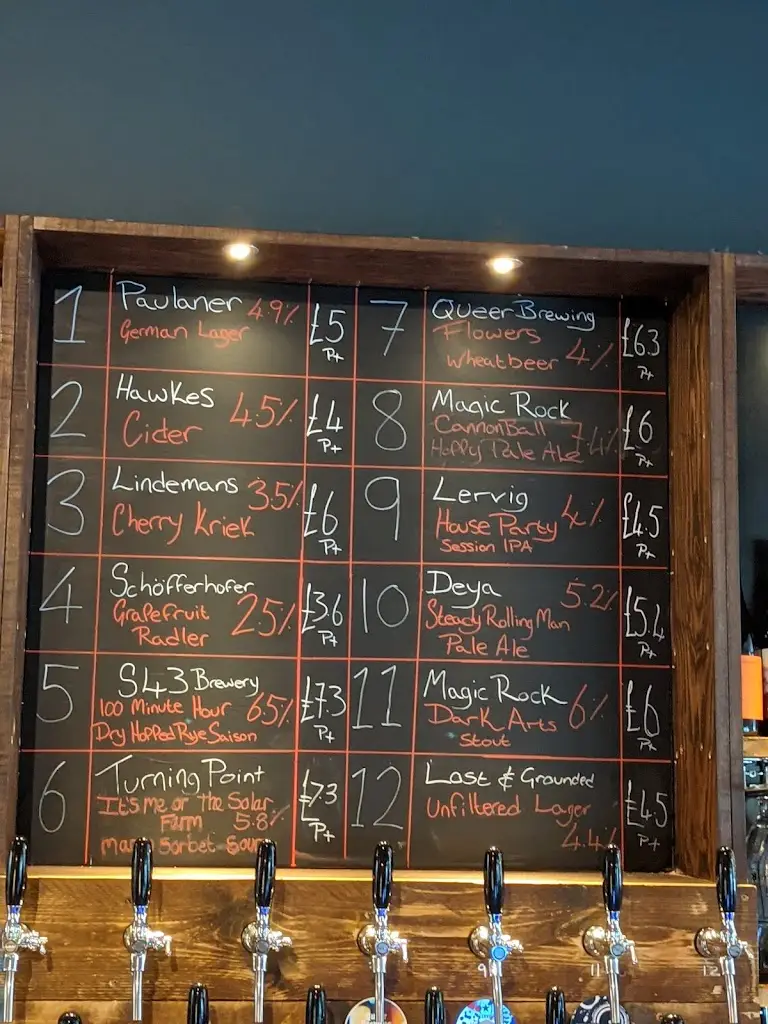 1
Paulaner 4.9%
German Lager
£5
P+
2
Hawkes
Cider 4.5%
£4
P+
3
Lindemans 3.5%
Cherry Kriek
£6
P+
4
Schöfferhofer
Grapefruit
Radler 2.5%
£3.6
P+
5
S43 Brewery
100 Minute Hour 6.5%
Dry Hopped Rye Saison
£7.3
P+
6
Turning Point
It's me or the Solar
Farm 5.8%
Sorbet Sour
£7.3
P+
7
Queer Brewing
Flowers
Wheatbeer 4%
£6.3
P+
8
Magic Rock
CannonBall 7.4%
Hoppy Pale Ale
£6
P+
9
Lervig
House Party 4%
Session IPA
£4.5
P+
10
Deya 5.2%
Steady Rolling Man
Pale Ale
P+
11
Magic Rock
Dark Arts 6%
Stout
£6
P+
12
Lost & Grounded
Unfiltered Lager
4.4%
£4.5
P+
9
11
12